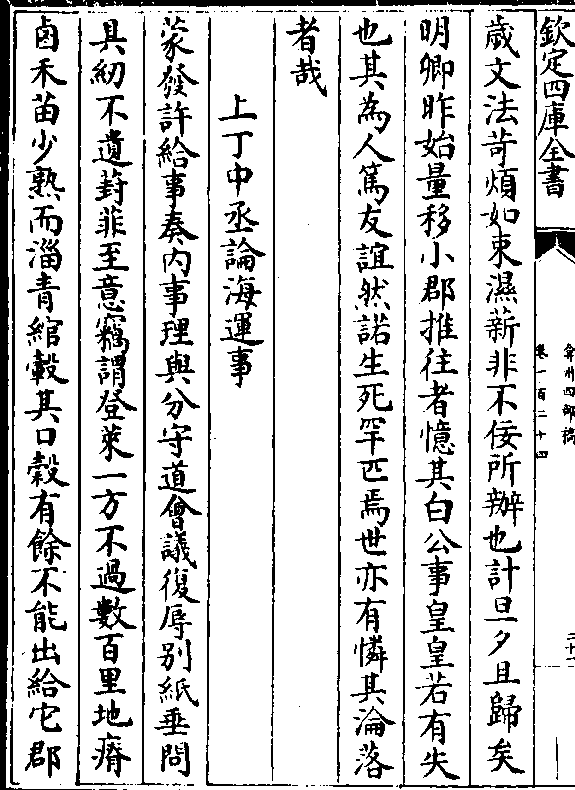 欽定四庫全書
弇州四部稿
卷一百二十四
歲文法苛煩如束濕薪非不佞所辦也計旦夕且歸矣
明卿昨始量移小郡推往者憶其白公事皇皇若有失
也其為人篤友誼然諾生死罕匹焉世亦有憐其淪落
者哉
上丁中丞論海運事
蒙發許給事奏內事理與分守道會議復辱别紙垂問
具紉不遺葑菲至意竊謂登萊一方不過數百里地瘠
鹵禾苗少熟而淄青綰轂其口穀有餘不能出給它郡